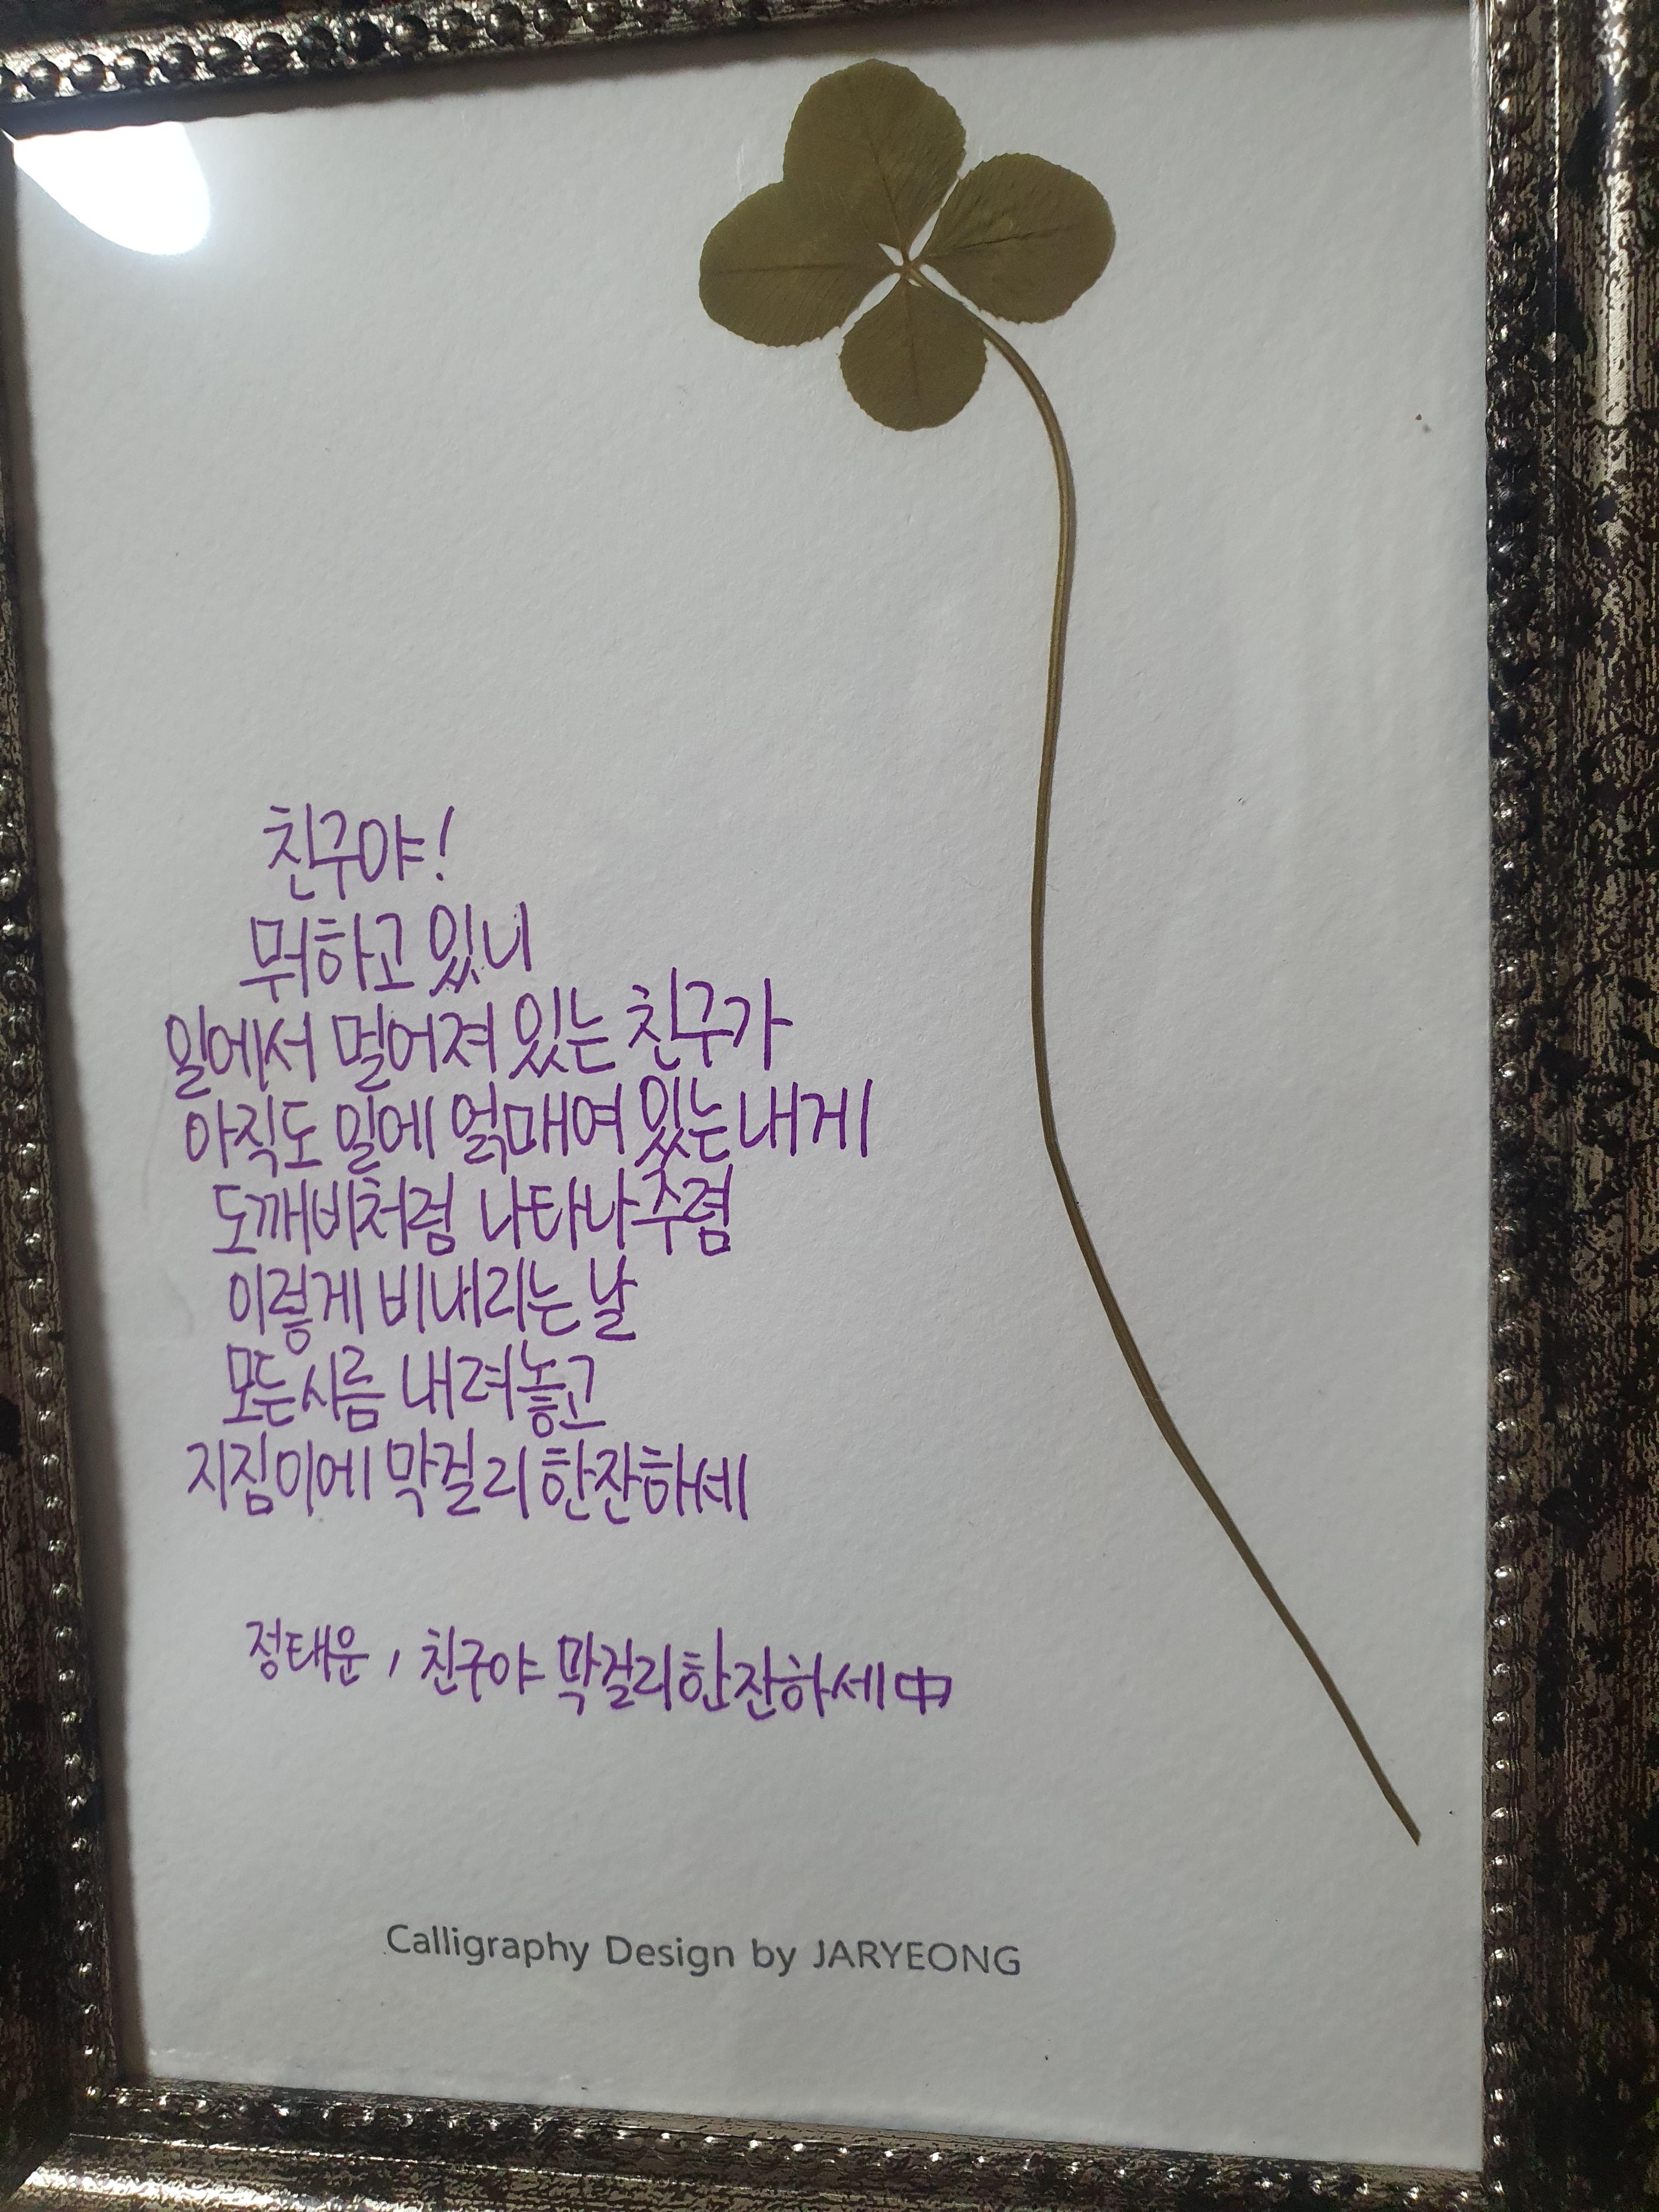 친구야!
뭐하고 있니
일에서 멀어져 있는 친구가
아직도 일에 얽매여 있는 내게
도깨비처럼 나타나주렴
이렇게 비내리는 날
모든시름 내려놓고
지짐이에 막걸리 한잔하세
정태운, 친구야 막걸리한잔하세 中
Calligraphy Design by JARYEONG